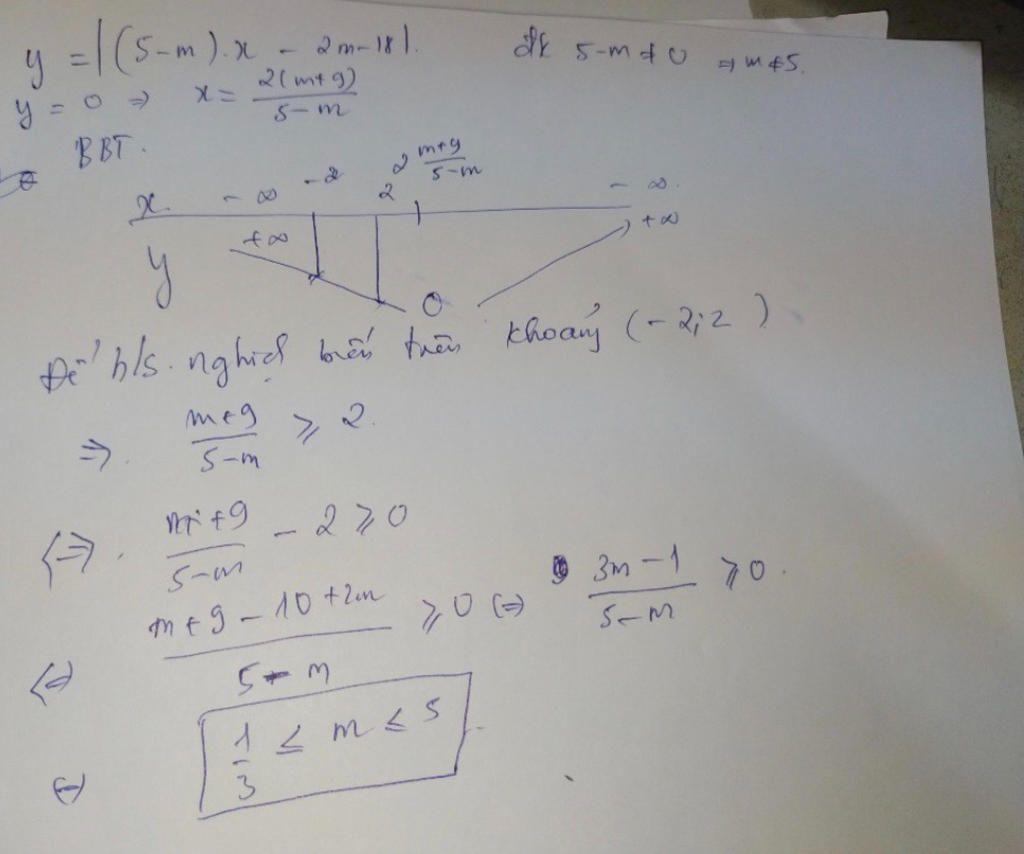 y = |(5-m).x - 2m-18|. đk 5-m≠0 ⇒ m≠5.
y = 0 ⇒ x = \frac{2(m+9)}{5-m}
BBT.
x -∞ -2 2 2\frac{m+9}{5-m} -∞.
y +∞ 0 +∞
Để h/s. nghịch biến trên khoảng (-2;2)
⇒. \frac{m+9}{5-m} ⩾ 2.
⇔. \frac{m+9}{5-m} - 2 ⩾ 0
⇔ \frac{m+9-10+2m}{5-m} ⩾ 0 ⇔ \frac{3m-1}{5-m} ⩾ 0.
⇔ \frac{1}{3} ≤ m ≤ 5